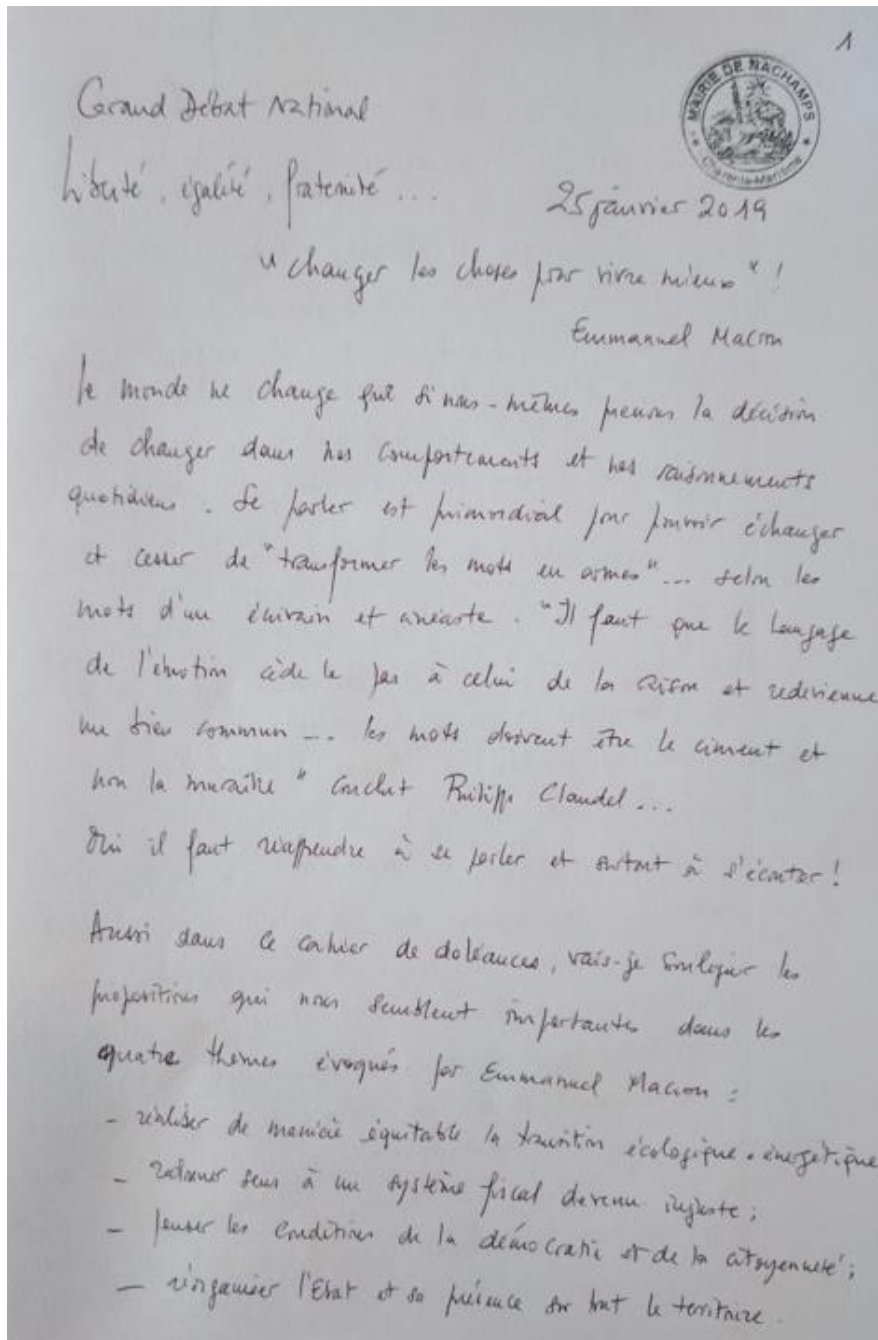 1
MAIRIE DE NACHAMPS
Charente-Maritime
Grand Débat National
Liberté, égalité, fraternité ...
25 janvier 2019
"changer les choses pour vivre mieux" !
Emmanuel Macron
Le monde ne change que si nous-mêmes prenons la décision
de changer dans nos comportements et nos raisonnements
quotidiens. Se parler est primordial pour pouvoir échanger
et cesser de "transformer les mots en armes"... selon les
mots d'un écrivain et cinéaste. "Il faut que le langage
de l'émotion cède le pas à celui de la raison et redevienne
un bien commun ... les mots doivent être le ciment et
non la muraille" conclut Philippe Claudel...
Oui il faut réapprendre à se parler et surtout à s'écouter !
Aussi dans ce cahier de doléances, vais-je souligner les
propositions qui nous semblent importantes dans les
quatre thèmes évoqués par Emmanuel Macron :
- réaliser de manière équitable la transition écologique. énergétique
- redonner sens à un système fiscal devenu injuste ;
- penser les conditions de la démocratie et de la citoyenneté ;
- réorganiser l'Etat et sa présence sur tout le territoire.